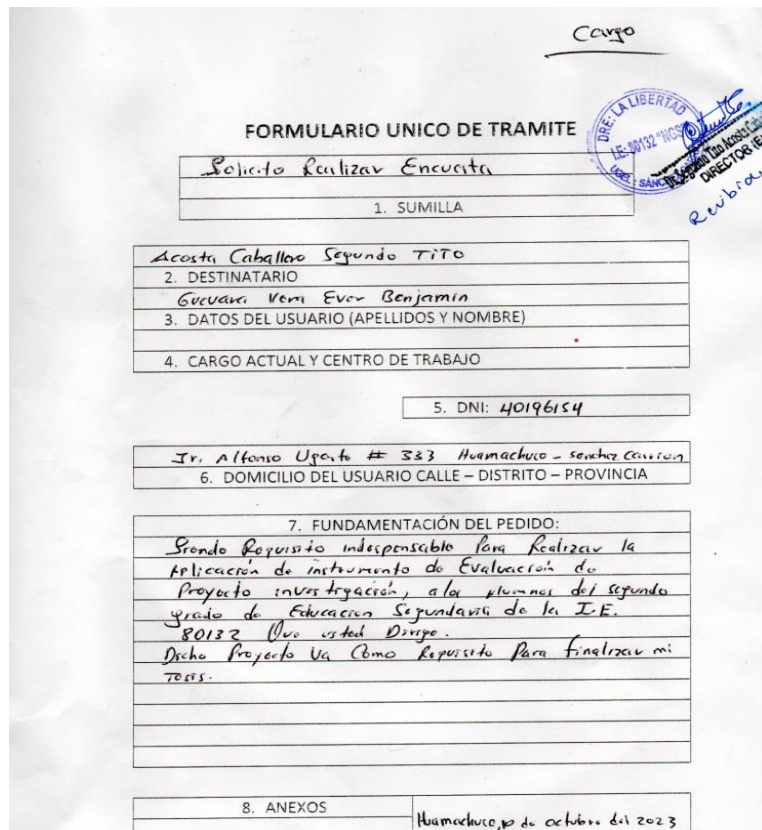 Cargo
DRE: LA LIBERTAD
I.E: 80132 "NGS
UGEL: SÁNC
Segundo Tito Acosta Cab
DIRECTOR (E)
Recibido
FORMULARIO UNICO DE TRAMITE
Solicito Realizar Encuesta
1. SUMILLA
Acosta Caballero Segundo TiTO
2. DESTINATARIO
Guevara Vera Ever Benjamin
3. DATOS DEL USUARIO (APELLIDOS Y NOMBRE)
4. CARGO ACTUAL Y CENTRO DE TRABAJO
5. DNI: 40196154
Jr. Alfonso Ugarte # 333 Huamachuco - Sanchez Carrion
6. DOMICILIO DEL USUARIO CALLE – DISTRITO – PROVINCIA
7. FUNDAMENTACIÓN DEL PEDIDO:
Siendo Requisito indespensable Para Realizar la
Aplicación de instrumento de Evaluación de
Proyecto investigación, a los alumnos del segundo
grado de Educacion Segundaria de la I.E.
80132 Que usted Dirige.
Dicho Proyecto Va Como Requisito Para finalizar mi
Tesis.
8. ANEXOS
Huamachuco, 10 de octubre del 2023